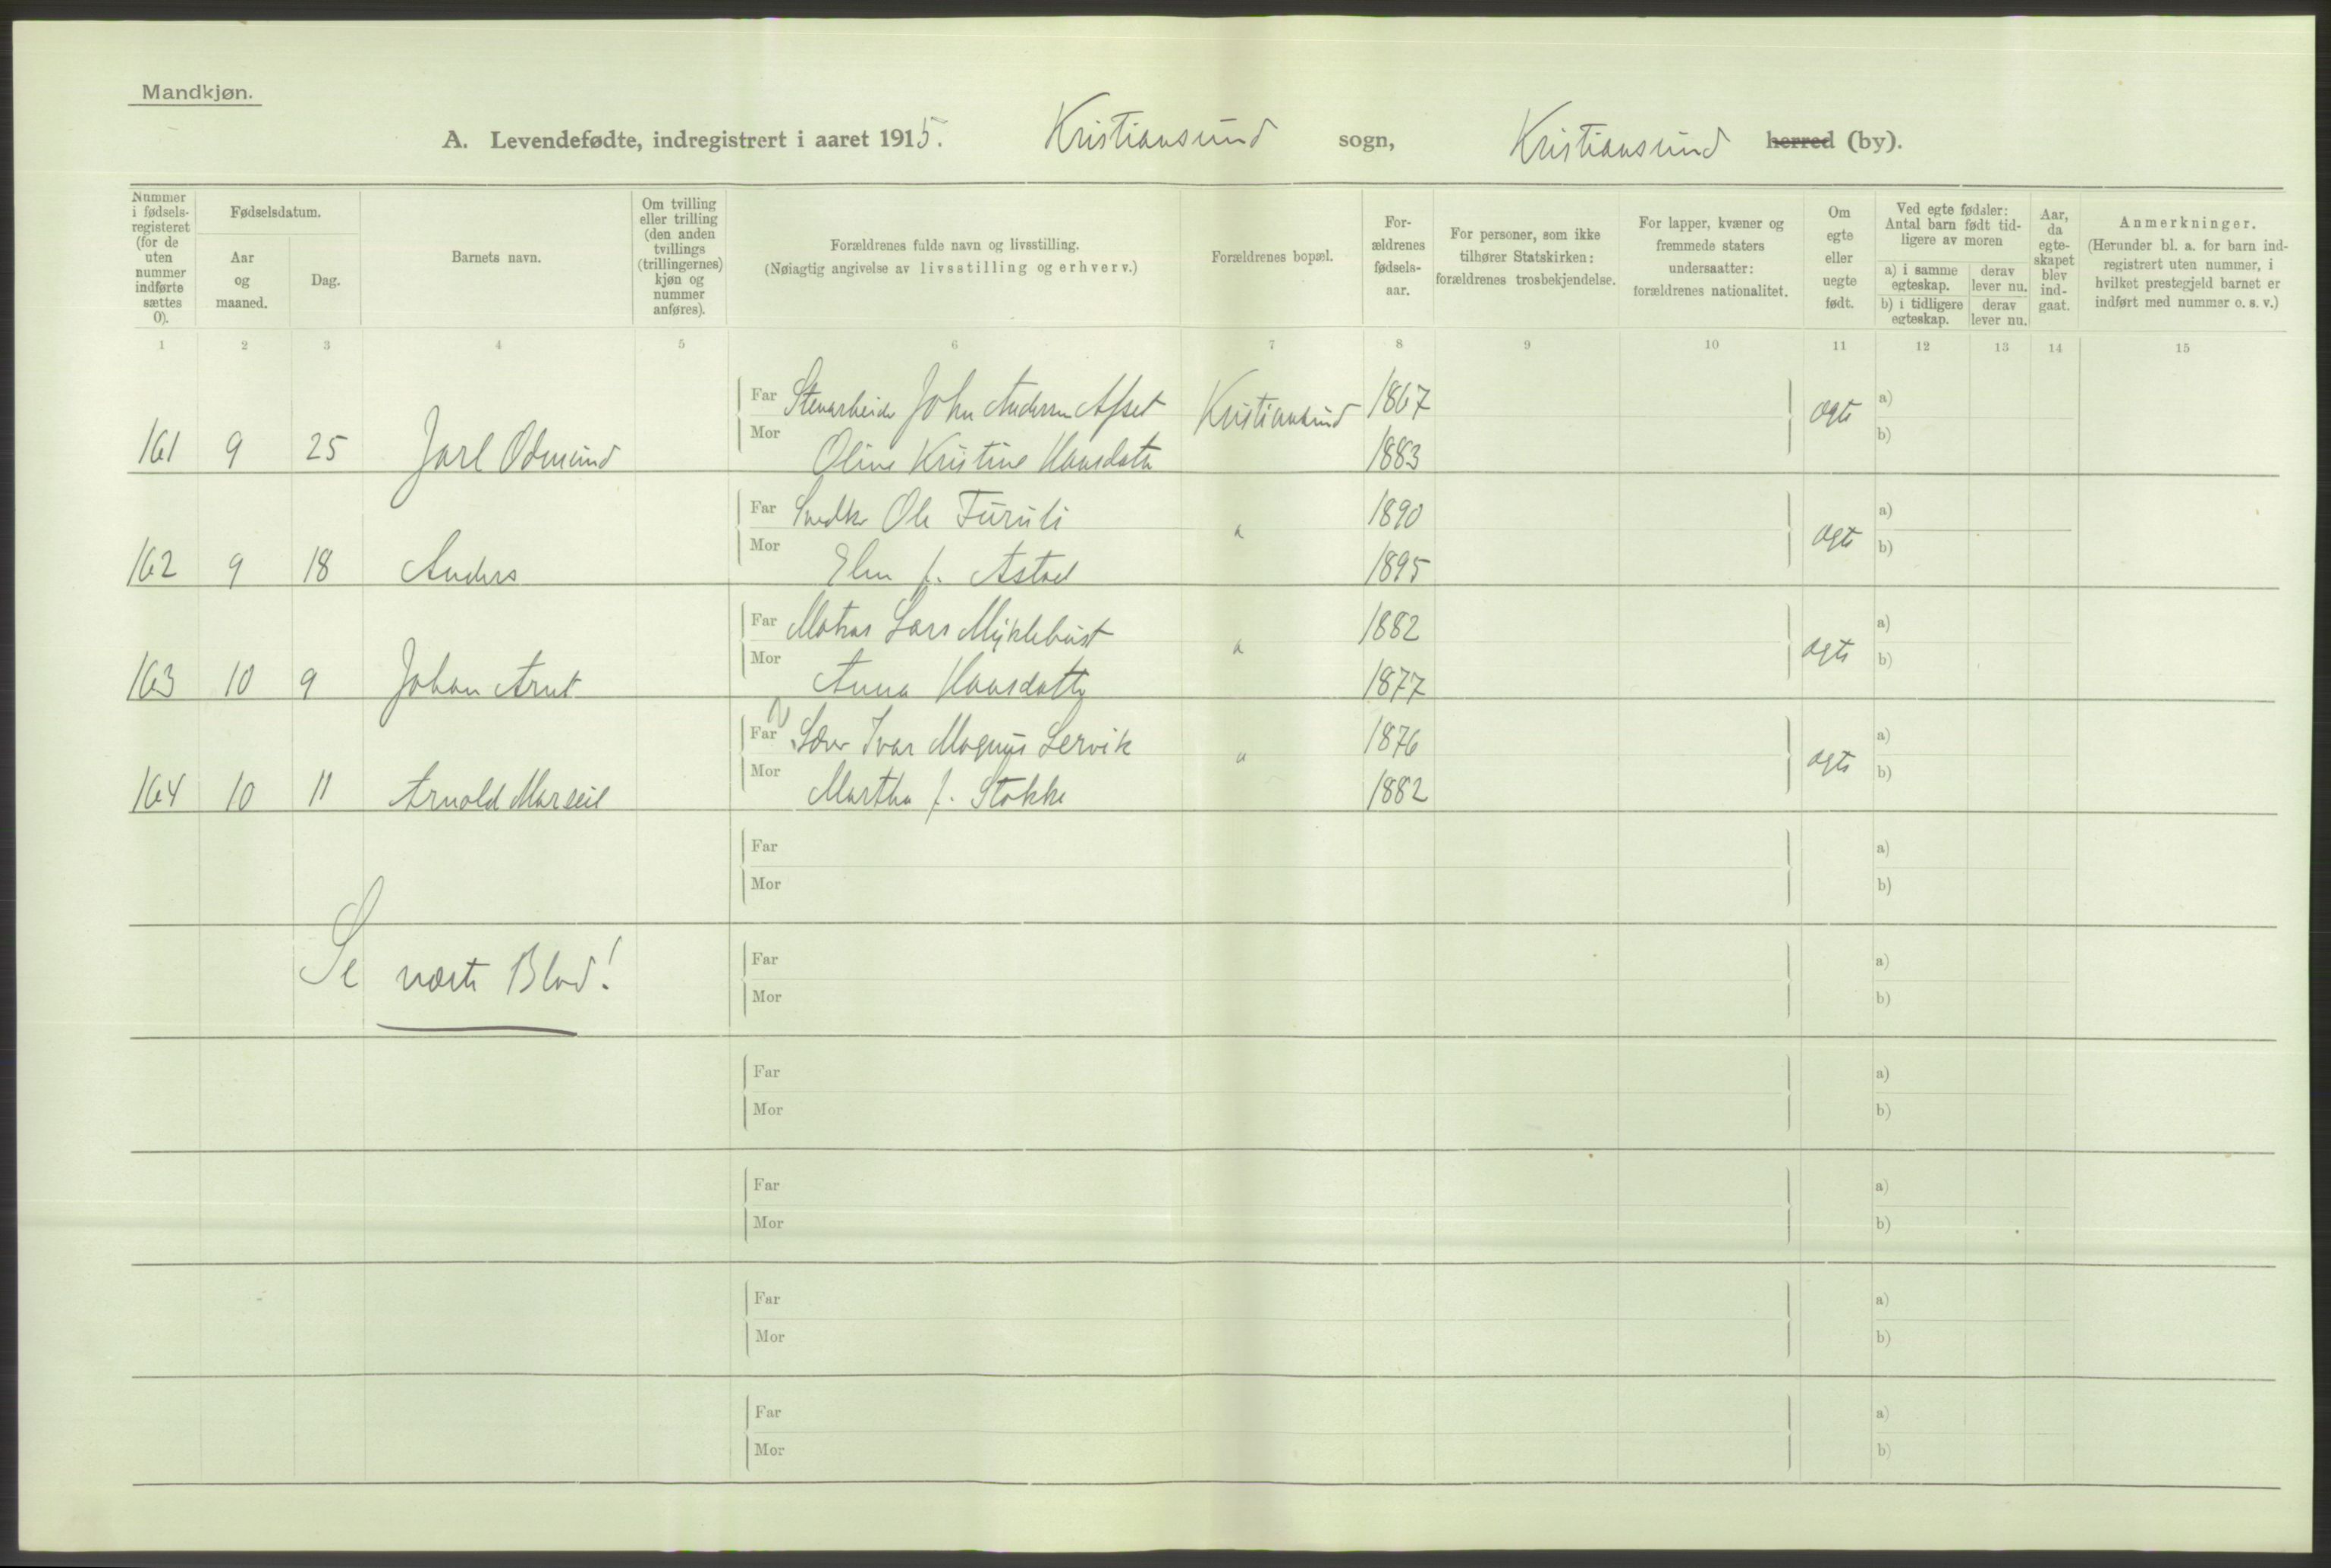 Mandkjøn.
A. Levendefødte, indregistrert i aaret 1915. Kristiansund sogn, Kristiansund herred (by).
Nummer i fødsels-registeret (for de uten nummer indførte sættes 0).
Fødselsdatum.
Aar og maaned.
Dag.
Barnets navn.
Om tvilling eller trilling (den anden tvillings (trillingernes) kjøn og nummer anføres).
Forældrenes fulde navn og livsstilling.
(Nøiagtig angivelse av livsstilling og erhverv.)
Forældrenes bopæl.
For-ældrenes fødsels-aar.
For personer, som ikke tilhører Statskirken: forældrenes trosbekjendelse.
For lapper, kvæner og fremmede staters undersaatter: forældrenes nationalitet.
Om egte eller uegte født.
Ved egte fødsler: Antal barn født tid-ligere av moren
a) i samme egteskap.
derav lever nu.
b) i tidligere egteskap.
derav lever nu.
Aar, da egte-skapet blev ind-gaat.
Anmerkninger.
(Herunder bl. a. for barn ind-registrert uten nummer, i hvilket prestegjeld barnet er indført med nummer o. s. v.)
1 2 3 4 5 6 7 8 9 10 11 12 13 14 15
Far Stenarbeider John Andersen Afset Kristiansund 1867 egte a)
161 9 25 Jarl Odmund Mor Olive Kristine Hansdatter 1883 b)
Far Snedker Ole Furuli " 1890 egte a)
162 9 18 Anders Mor f. 1895 b)
Far Matros Lars Myklebust " 1882 egte a)
163 10 9 Johan Arnt Mor Anna Hansdatter 1877 b)
Far Ivar Magnus Lervik " 1876 egte a)
164 10 11 Arnold Mor Martha f. Stokke 1882 b)
Far a)
Mor b)
Se næste Blad!
Far a)
Mor b)
Far a)
Mor b)
Far a)
Mor b)
Far a)
Mor b)
Far a)
Mor b)